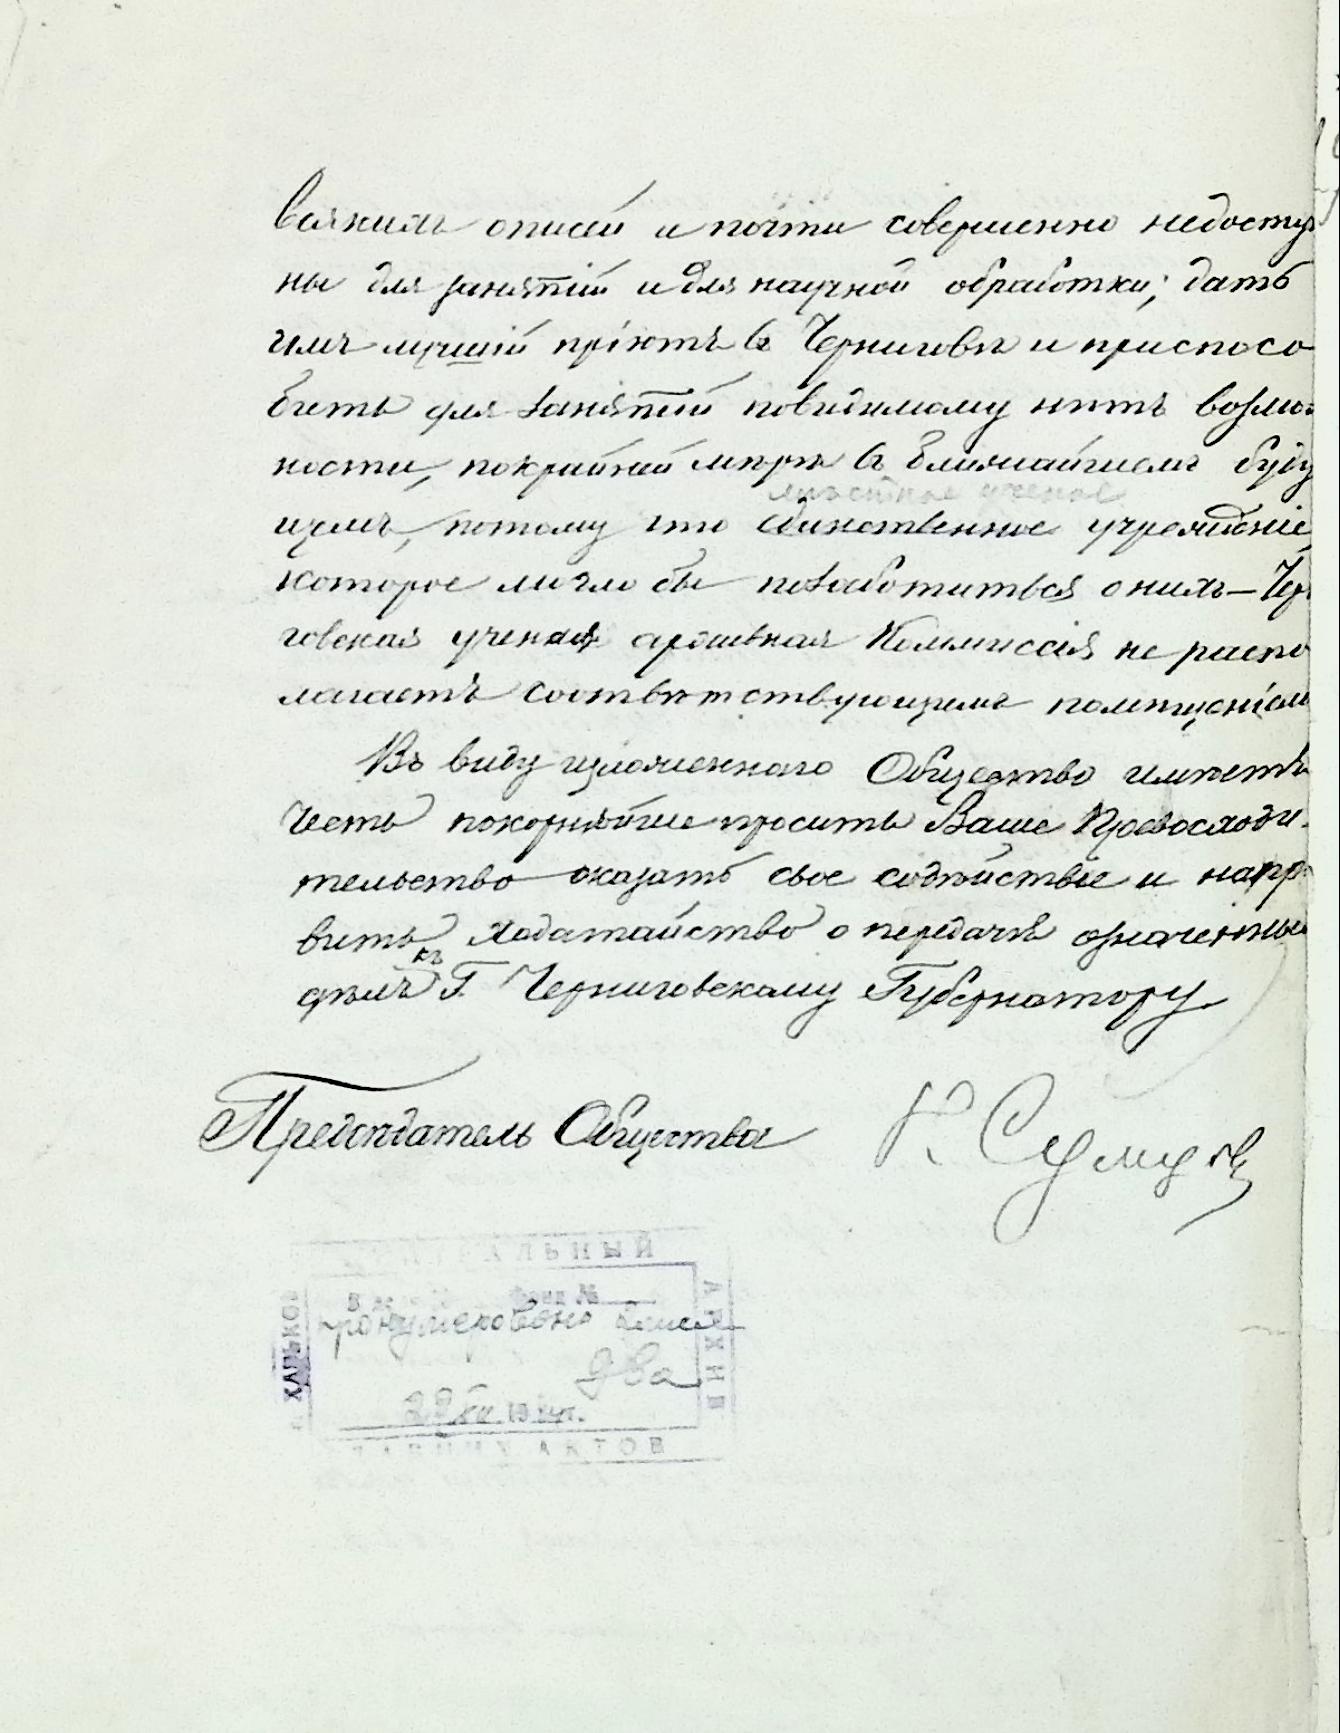 всякихъ описей и почти совершенно недоступ
ны для занятій и для научной обработки; дать
имъ лучшій пріютъ въ Черниговѣ и приспосо
бить для занятій повидимому нѣтъ возмож
ности, покрайней мѣрѣ въ ближайшемъ буду
мѣстное ученое
щемъ, потому что единственное учрежденіе
которое могло бы позаботиться о нихъ – Чер
говская ученая архивная Коммиссія не распо
лагаетъ соотвѣтствующемъ помѣщеніем
Въ виду изложеннаго Общество имѣетъ
честь покорнѣйше просить Ваше Превосходи-
тельство оказать свое содѣйствіе и напра
вить ходатайство о передачѣ означенных
къ
дѣлъ Г. Черниговскому Губернатору
Предсѣдатель Общества Н. Сумцовъ
ЦЕНТРАЛЬНЫЙ
Фонд №
ХАРЬКОВ
АРХИВ
пронумеровано
два
29 XII 19 г.
АКТОВ